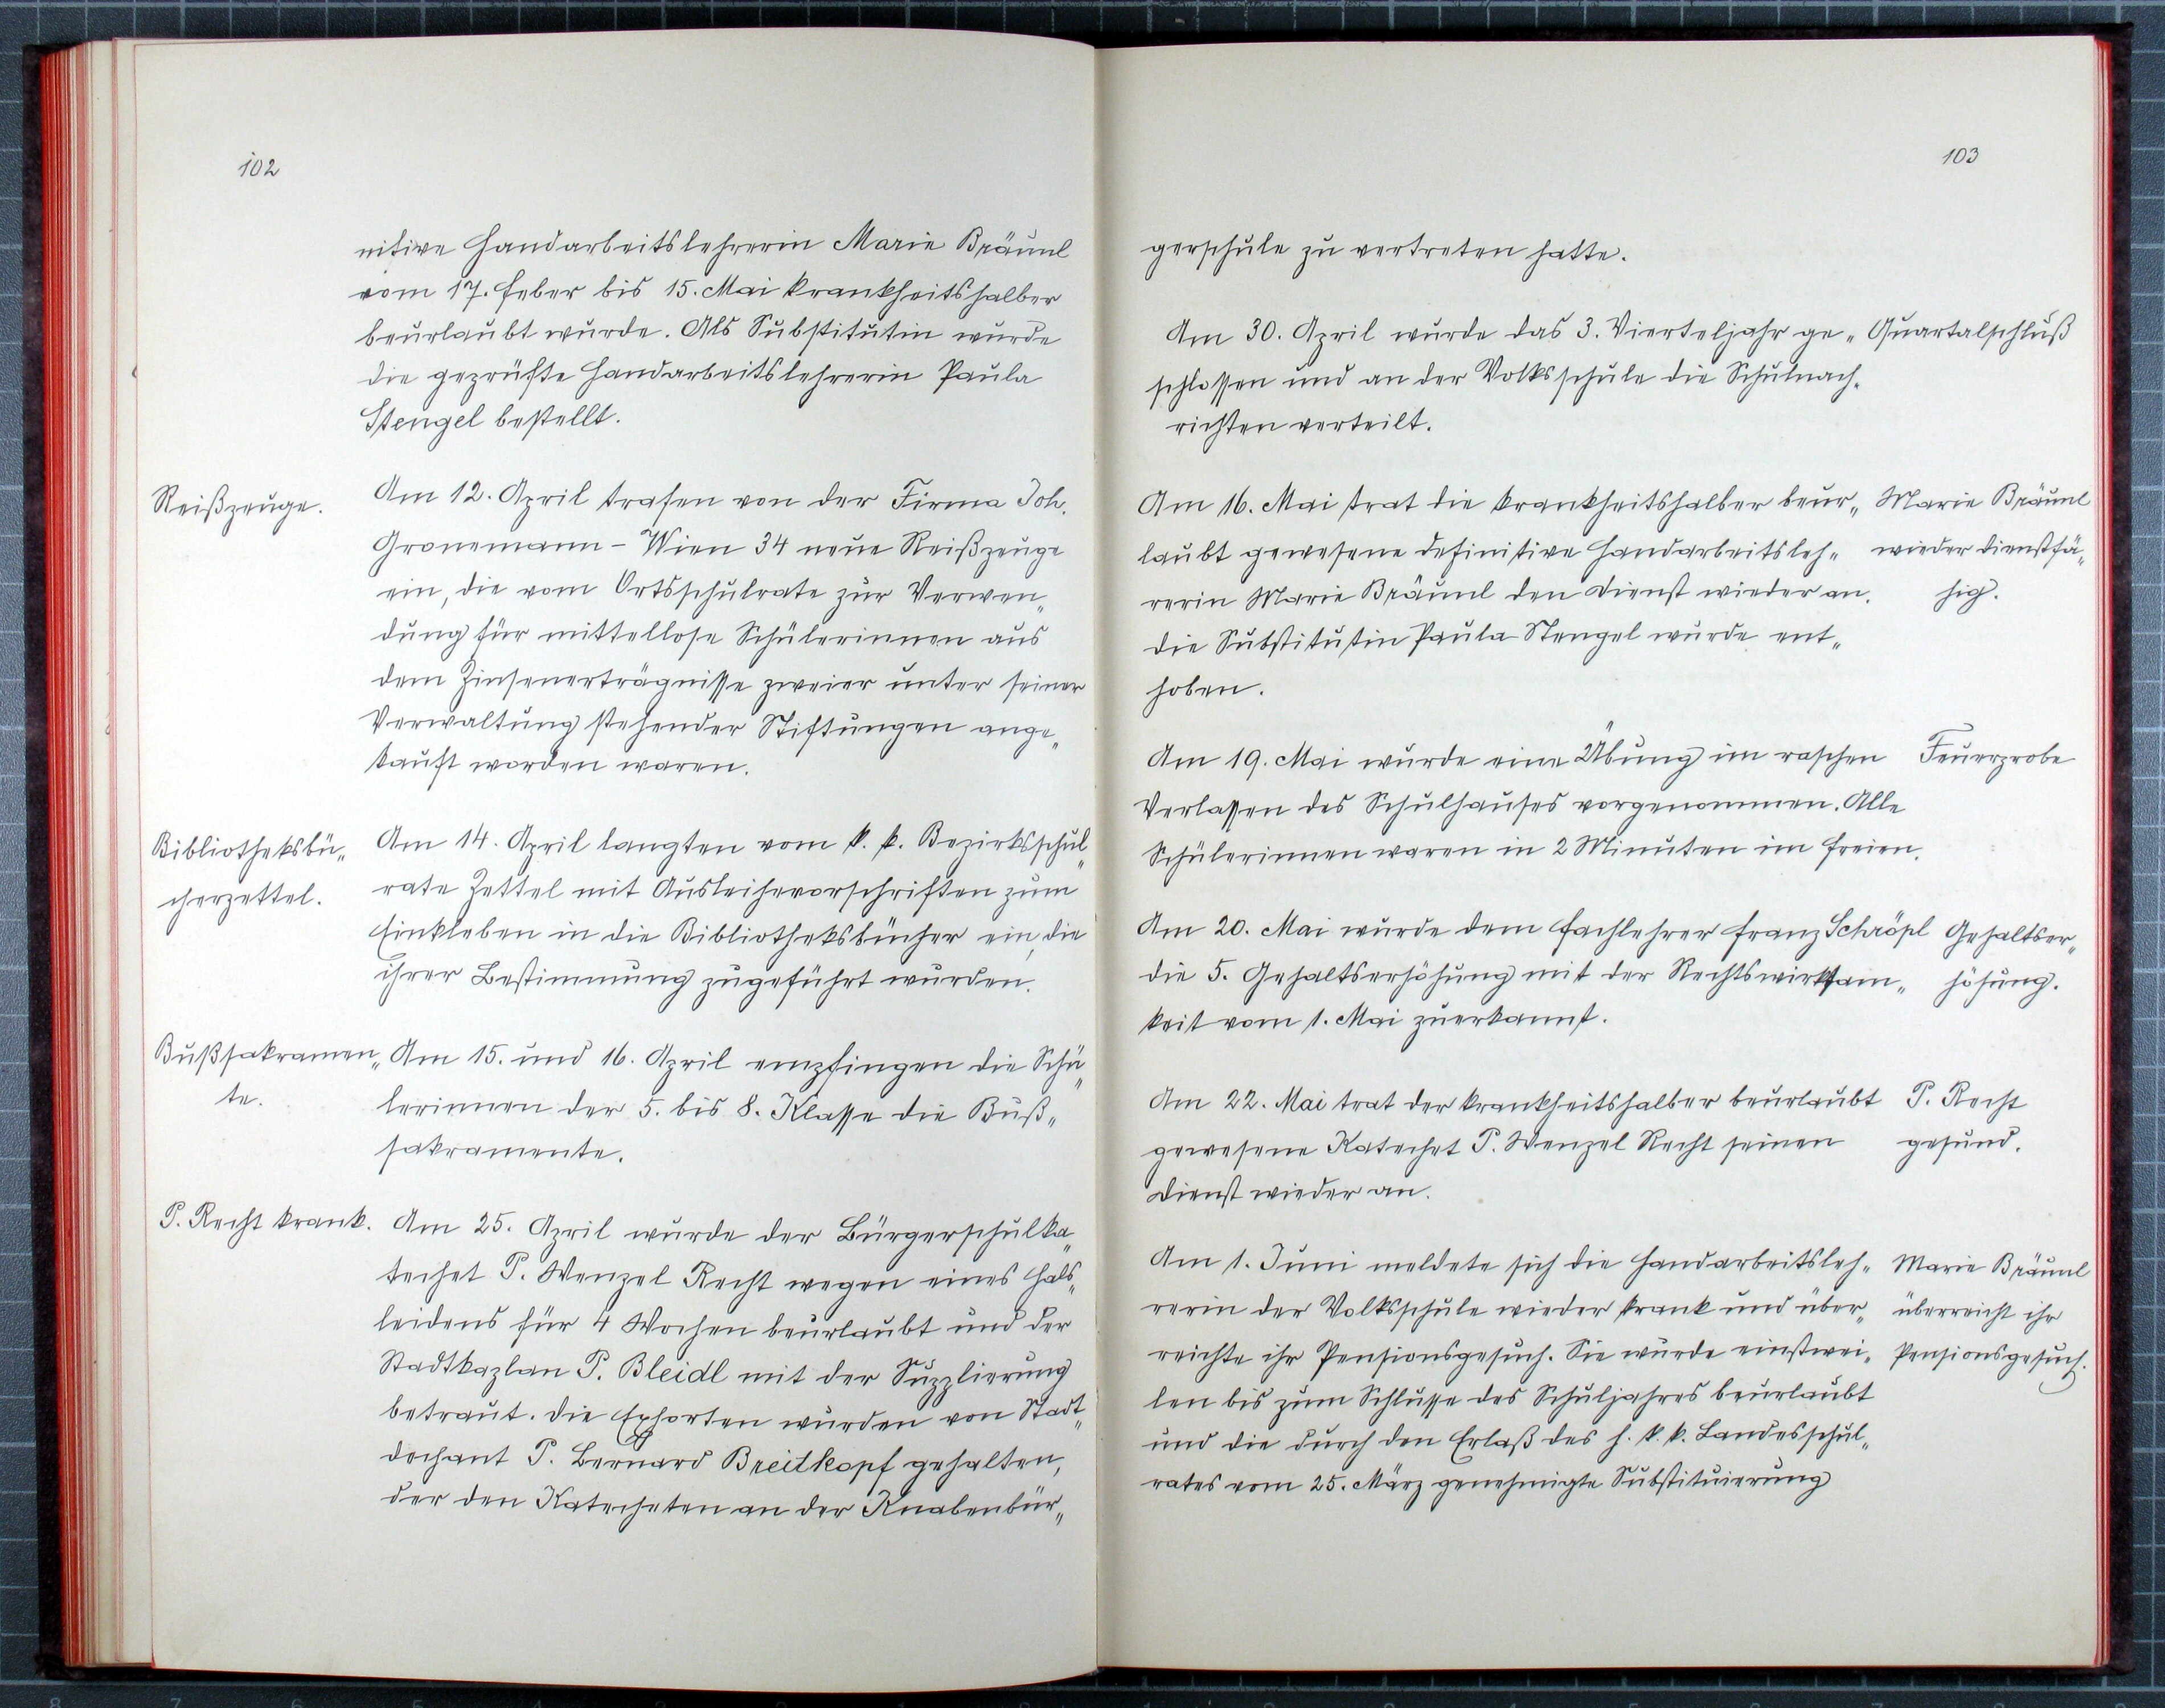 102
nitive Handarbeitslehrerin Marie Bräunl
vom 17. Feber bis 15. Mai krankheitshalber
beurlaubt wurde. Als Substitutin wurde
die geprüfte Handarbeitslehrerin Paula
Stengel bestellt.
Reißzeuge.
Am 12. April trafen von der Firma Joh.
Gronemann - Wien 34 neue Reißzeuge
ein, die vom Ortsschulrate zur Verwen„
dung für mittellose Schülerinnen aus
dem Zinsenerträgnisse zweier unter seiner
Verwaltung stehender Stiftungen ange„
kauft worden waren.
Bibliotheksbü„
cherzettel.
Am 14. April langten vom k. k. Bezirksschul„
rate Zettel mit Ausleihevorschriften zum
Einkleben in die Bibliotheksbücher ein, die
ihrer Bestimmung zugeführt wurden.
Bußsakramen„
te.
Am 15. und 16. April empfingen die Schü„
lerinnen der 5. bis 8. Klasse die Buß„
sakramente.
P. Recht krank.
Am 25. April wurde der Bürgerschulka„
techet P. Wenzel Recht wegen eines Hals„
leidens für 4 Wochen beurlaubt und der
Stadtkaplan P. Bleidl mit der Supplierung
betraut. Die Exhorten wurden von Stadt„
dechant P. Bernard Breitkopf gehalten,
der den Katecheten an der Knabenbür„
103
gerschule zu vertreten hatte.
Am 30. April wurde das 3. Vierteljahr ge„
schlossen und an der Volksschule die Schulnach„
richten verteilt.
Quartalschluß
Am 16. Mai trat die krankheitshalber beur„
laubt gewesene definitive Handarbeitsleh„
rerin Marie Bräunl den Dienst wieder an.
Die Substitutin Paula Stengel wurde ent„
hoben.
Marie Bräunl
wieder dienstfä„
hig.
Am 19. Mai wurde eine Übung im raschen
Verlassen des Schulhauses vorgenommen. Alle
Schülerinnen waren in 2 Minuten im Freien.
Feuerprobe
Am 20. Mai wurde dem Fachlehrer Franz Schröpl
die 5. Gehaltserhöhung mit der Rechtswirksam„
keit vom 1. Mai zuerkannt.
Gehaltser„
höhung.
Am 22. Mai trat der krankheitshalber beurlaubt
gewesene Katechet P. Wenzel Recht seinen
Dienst wieder an.
P. Recht
gesund.
Am 1. Juni meldete sich die Handarbeitsleh„
rerin der Volksschule wieder krank und über„
reichte ihr Pensionsgesuch. Sie wurde einstwei„
len bis zum Schlusse des Schuljahres beurlaubt
und die durch den Erlaß des h. k. k. Landesschul„
rates vom 25. März genehmigte Substituierung
Marie Bräunl
überreicht ihr
Pensionsgesuch.